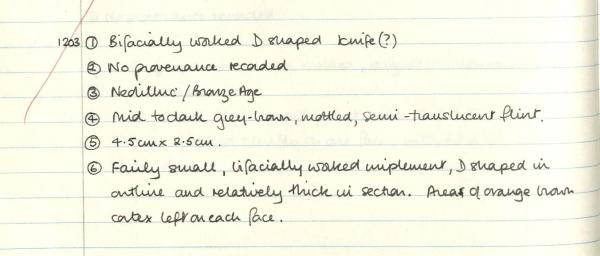 1203 ① Bifacially worked D shaped knife (?)
② No provenance recorded
③ Neolithic / Bronze Age
④ Mid to dark grey-brown, mottled, semi-translucent flint.
⑤ 4.5cm x 2.5cm.
⑥ Fairly small, bifacially worked implement, D shaped in
outline and relatively thick in section. Areas of orange brown
cortex left on each face.